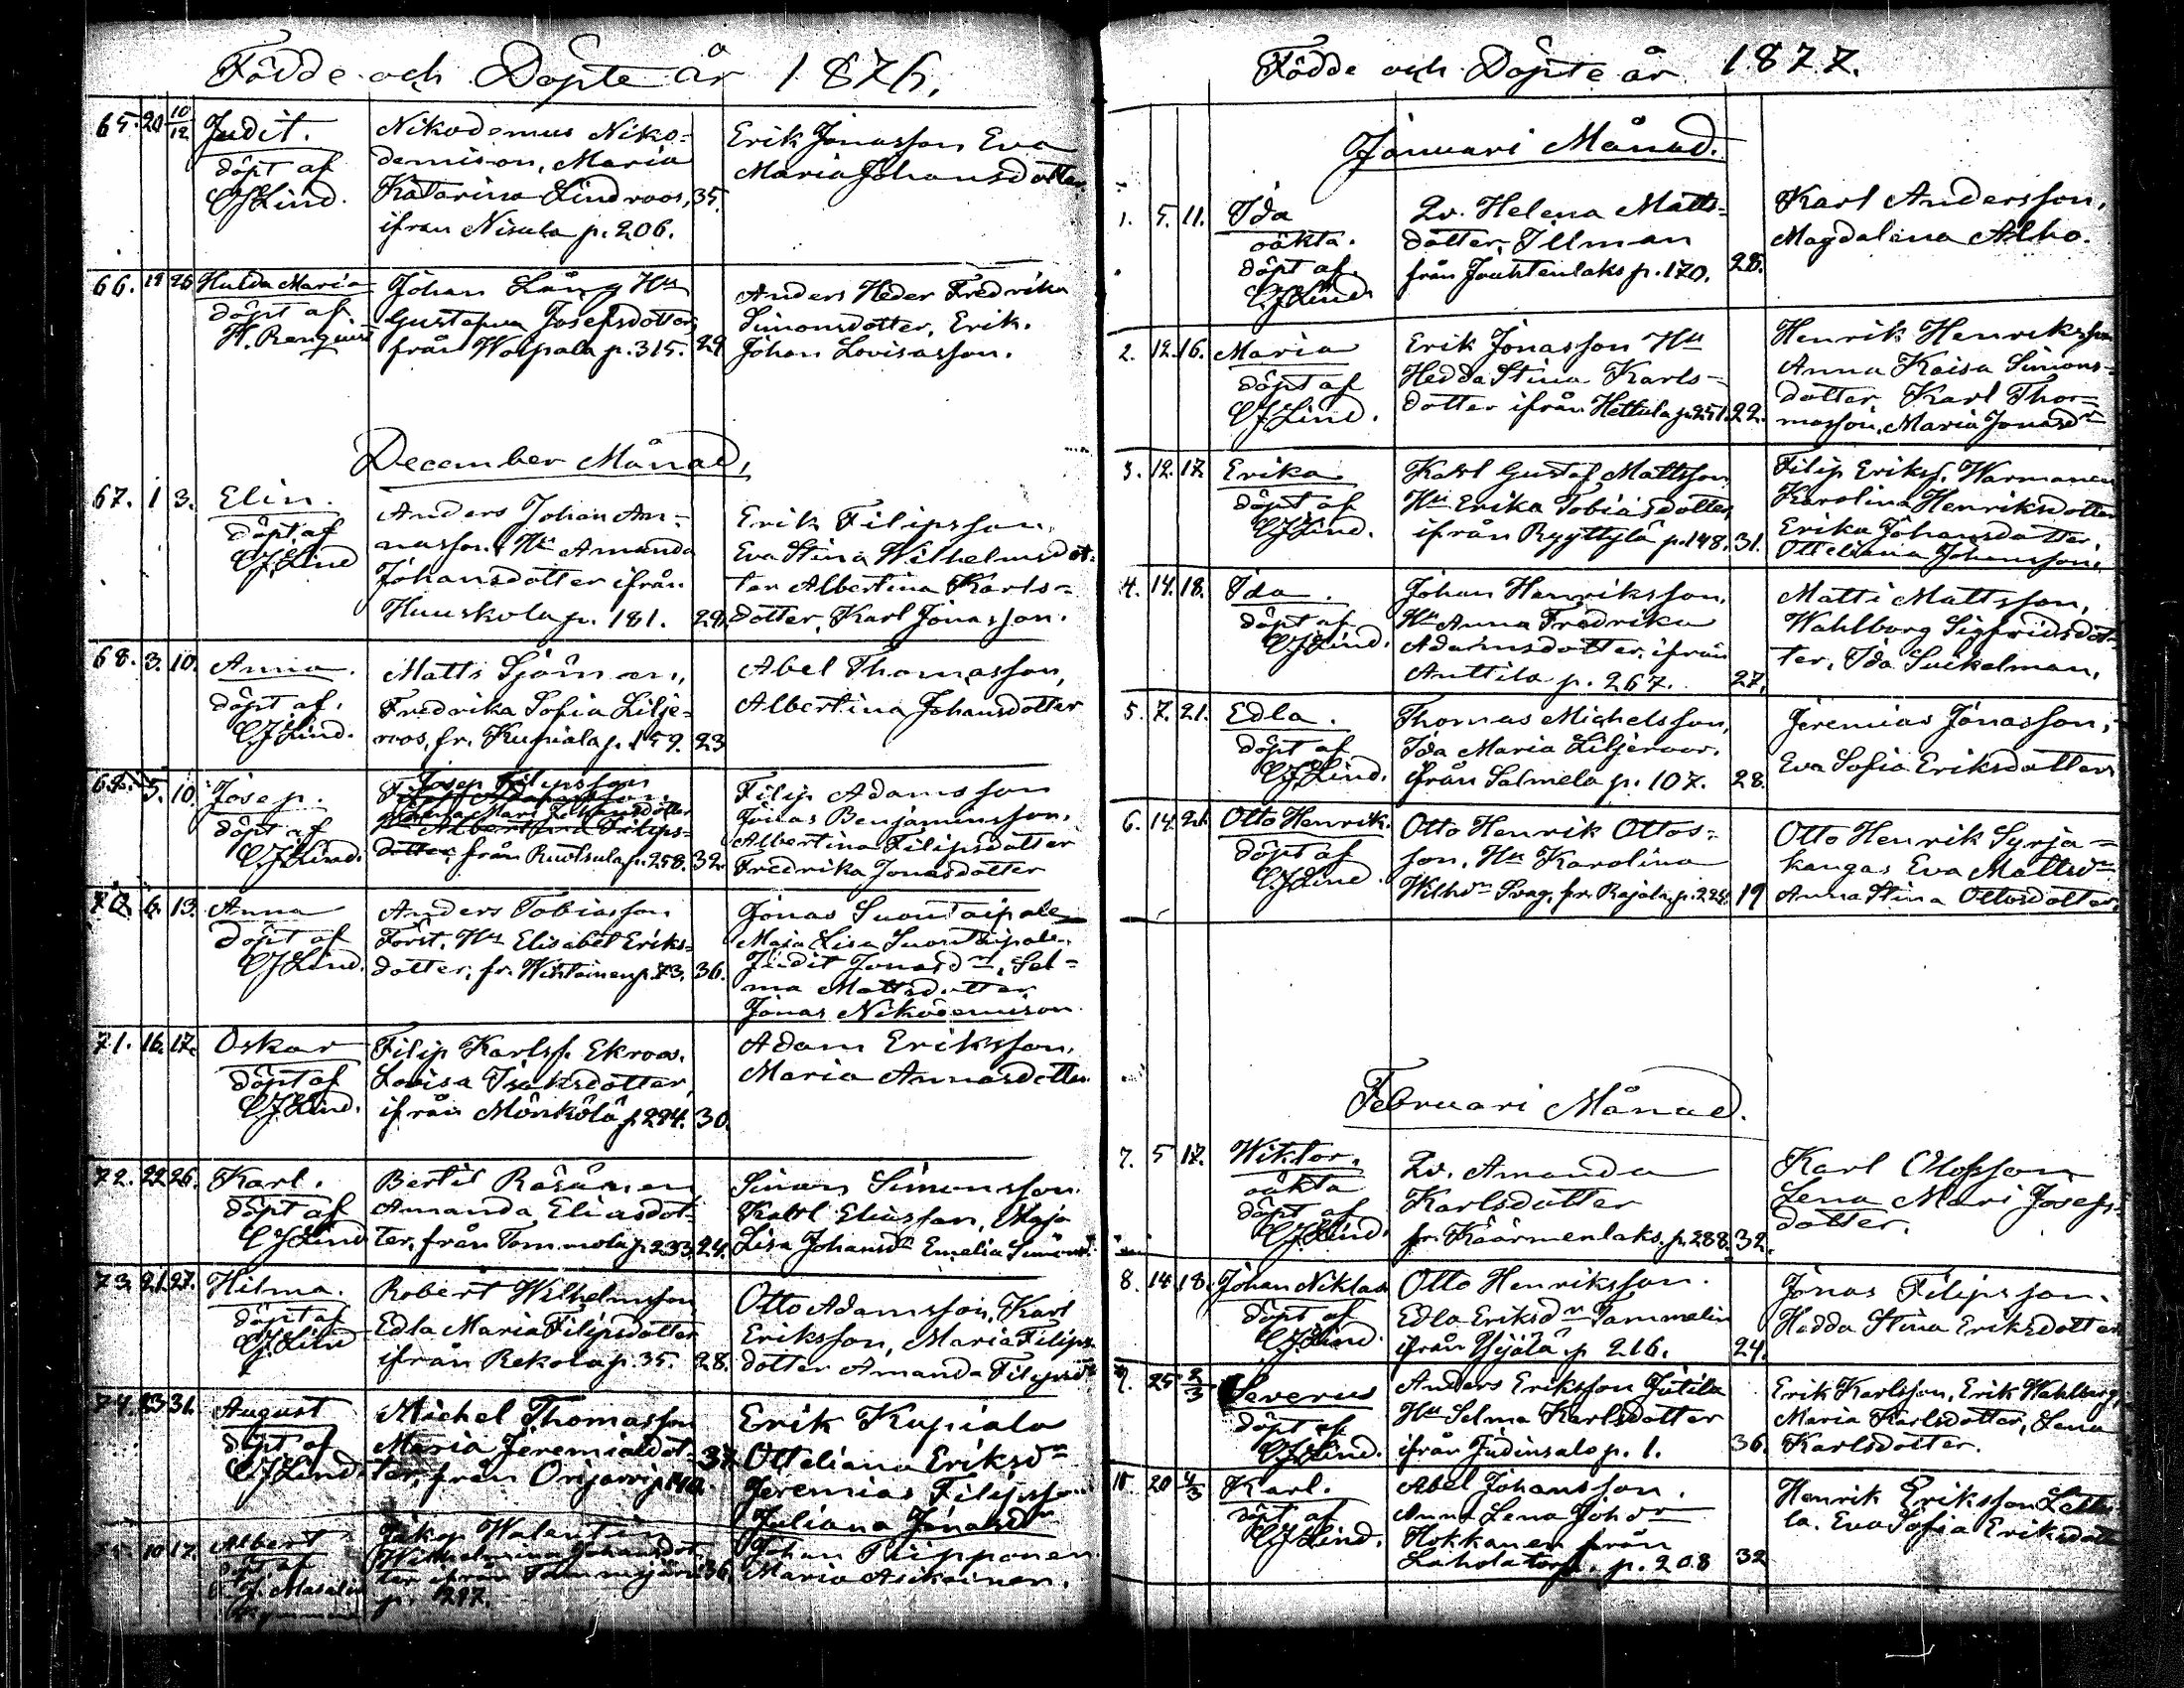 Födde och Döpte år 1876.
65. 20 10/12 Judit. döpt af CJLind.
Nikodemus Niko-
demison, Maria
Katarina Lindroos, 35.
ifrån Nisula p. 206.
Erik Jonasson Eva
Maria Johansdotter.
66. 19 26 Hulda Maria döpt af H. Renquist
Johan Lång Hu
Gustafva Josefsdotter,
från Woipala p. 315. 29
Anders Heder Fredrika
Simonsdotter, Erik.
Johan Lovisasson.
December Månad,
67. 1 3. Elin. döpt af CJLind
Anders Johan An-
nasson, Hu Amanda
Johansdotter ifrån
Huuskola p. 181. 28.
Erik Filipsson,
Eva Stina Wilhelmsdot-
ter Albertina Karls-
dotter, Karl Jonasson.
68. 3. 10. Anna. döpt af. CJLind.
Matts Sjöman,
Fredrika Sofia Lilje-
roos, fr. Kupiala p. 159. 23
Abel Thomasson,
Albertina Johansdotter
69. 5. 10. Josep. döpt af CJLind.
Josep Filipsson
Maria Mari Johansdotter
Albertina Filips-
dotter, från Ruotsula p. 258. 32.
Filip Adamsson
Jonas Benjaminsson,
Albertina Filipsdotter
Fredrika Jonasdotter
70. 6. 13. Anna döpt af CJLind.
Anders Tobiasson
Först. Hu Elisabet Eriks-
dotter, fr. p. 73. 36.
Jonas Suontaipale
Maja Lisa Suontaipale,
Judit Jonasdr, Sel-
ma Mattsdotter
Jonas Nikodemison
71. 16. 17. Oskar döpt af CJLind.
Filip Karlsf. Ekroos.
Lovisa Isaksdotter,
ifrån Mönkölä p. 294. 30.
Adam Eriksson,
Maria Annasdotter
72. 22 26. Karl. döpt af CJLind
Bertil Räsänen
Amanda Eliasdot-
ter, från Tommola p. 233. 24.
Simon Simonsson.
Karl Eliasson, Maja
Lisa Johansdr Emelia Simonsdr
73. 21. 27. Hilma. döpt af CJLind
Robert Wilhelmsson
Edla Maria Filipsdotter
ifrån Rekola p. 35. 28.
Otto Adamsson, Karl
Eriksson, Maria Filips-
dotter Amanda Filipsdr
74. 23 31. August döpt af CJLind.
Michel Thomasson
Maria Jeremiaedot- 37.
ter, från Orijarvi p. 140.
Erik Kupiala
Otteliana Eriksdr
Jeremias Filipsson
Juliana Jonasdr
75. 10 17. Albert döpt af J. Masalin
Jakop Walentin
Wilhelmina Johansdot-
ter ifrån Tammijärvi 36.
p. 297.
Johan Piipponen
Maria Asikainen.
Födde och Döpte år 1877.
Januari Månad.
1. 5. 11. Ida oäkta. döpt af. CJLind
Qv. Helena Matts-
dotter, Illman
från Jouhtenlaks p. 170. 28.
Karl Andersson,
Magdalena Alho.
2. 12. 16. Maria döpt af CJLind.
Erik Jonasson Hu
Hedda Stina Karls-
dotter ifrån Hettula p. 251. 22.
Henrik Henriksson
Anna Kaisa Simons-
dotter Karl Thor-
masson, Maria Jonasdr
3. 12. 17 Erika döpt af CJLind.
Karl Gustaf Mattsson
Hu Erika Tobiasdotter,
ifrån Ryyttylä p. 148. 31.
Filip Eriksf. Warmanen
Karolina Henriksdotter
Erika Johansdotter,
Otteliana Johansson,
4. 14. 18. Ida. döpt af CJLind.
Johan Henriksson,
Hu Anna Fredrika
Adamsdotter, ifrån
Anttila p. 267. 27.
Matti Mattsson,
Wahlborg Sigfridsdot-
ter, Ida Suikelman,
5. 7. 21. Edla. döpt af CJLind.
Thomas Michelsson,
Ida Maria Liljeroos.
ifrån Salmela p. 107. 28.
Jeremias Jonasson,
Eva Sofia Eriksdotter
6. 14. 21. Otto Henrik. döpt af CJLind.
Otto Henrik Ottos-
son, Hu Karolina
Wilhdr Svag, fr. Rajala p. 224. 19
Otto Henrik Syrja-
kangas Eva Mattsdr
Anna Stina Ottosdotter,
Februari Månad.
7. 5 17. Wiktor. oäkta döpt af CJLind.
Qv. Amanda
Karlsdotter
fr. Käärmenlaks. p. 288. 32.
Karl Olofsson
Lena Mari Josefs-
dotter.
8. 14 18. Johan Niklas döpt af CJLind.
Otto Henriksson.
Edla Eriksdr Tammelin
ifrån Yijälä p. 216. 24.
Jonas Filipsson.
Hedda Stina Eriksdotter
9. 25 2/3 Severus döpt af CJLind.
Anders Eriksson Jutila
Hu Selma Karlsdotter
ifrån Judinsalo p. 1. 36.
Erik Karlsson, Erik Wahlberg,
Maria Karlsdotter, Lena
Karlsdotter.
10 20 4/3 Karl. döpt af CJLind.
Abel Johansson.
Anna Lena Johdr
Hokkanen från
Laholatorp. p. 208 32
Henrik Eriksson
la. Eva Sofia Eriksdotter